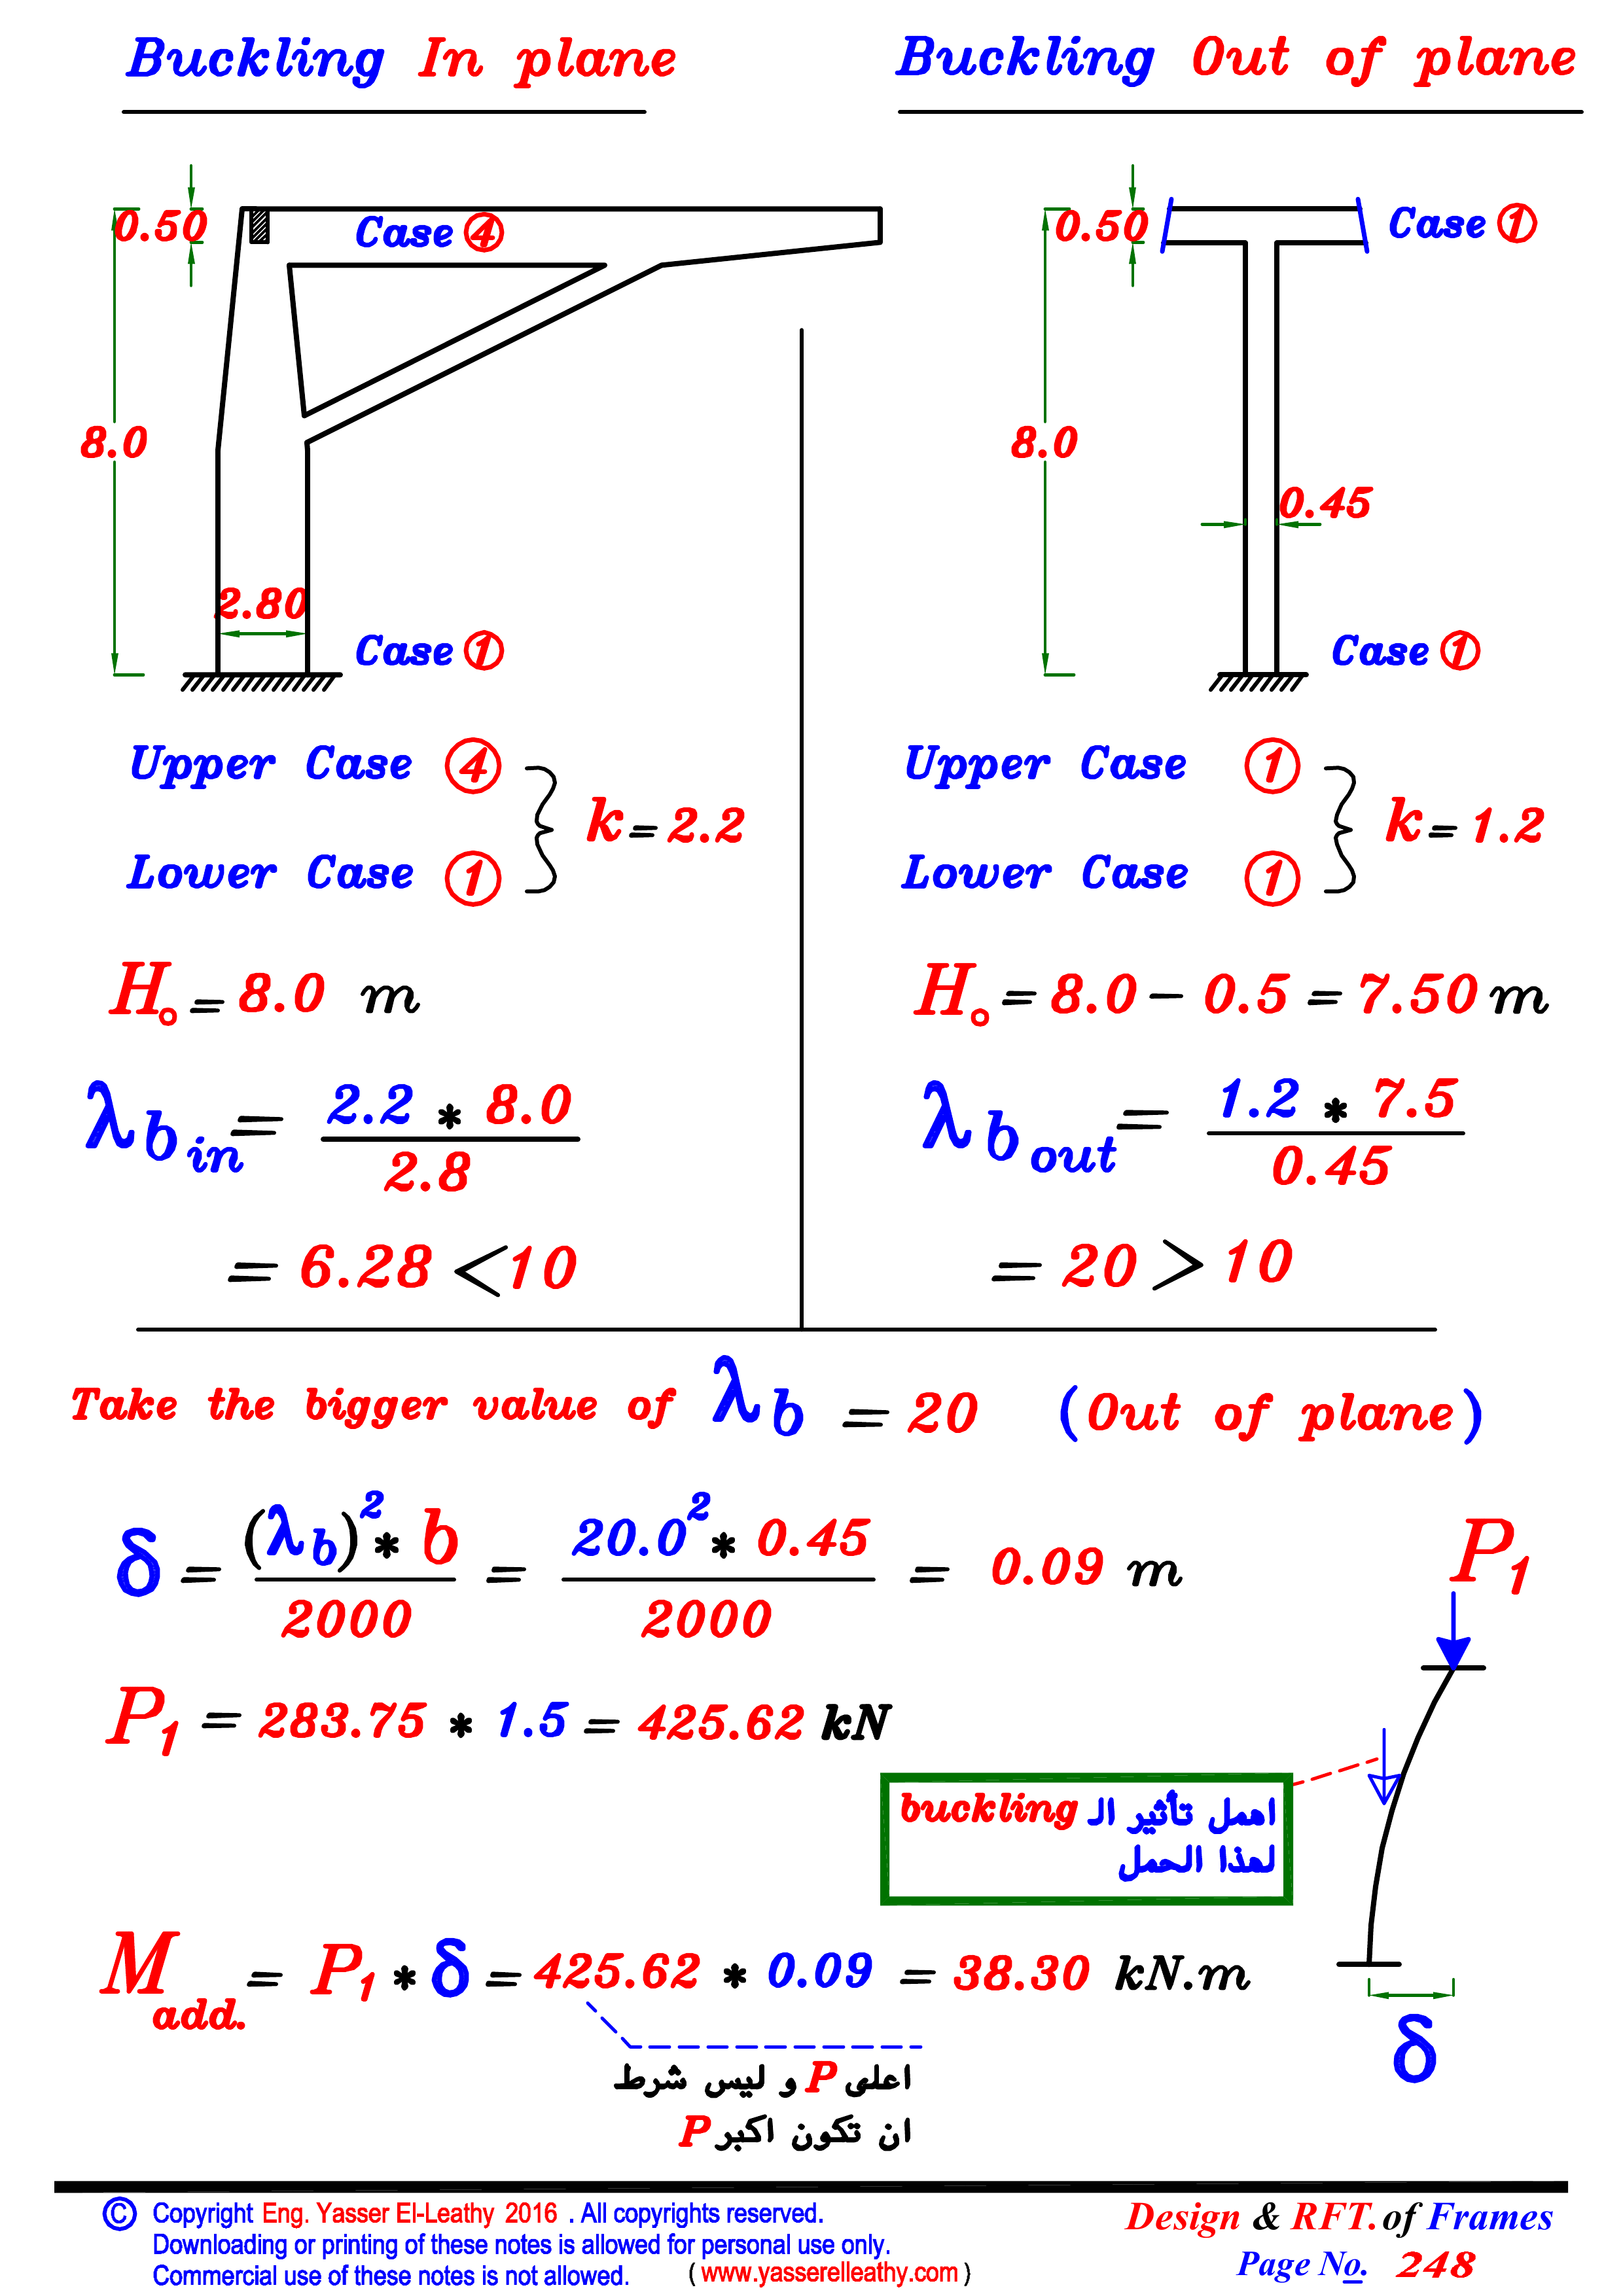 Buckling In plane
Buckling Out of plane
0.50
Case 4
8.0
2.80
Case 1
0.50
Case 1
8.0
0.45
Case 1
Upper Case 4
Lower Case 1
k = 2.2
Upper Case 1
Lower Case 1
k = 1.2
H₀ = 8.0 m
H₀ = 8.0 - 0.5 = 7.50 m
λb in = 2.2 * 8.0 / 2.8
= 6.28 < 10
λb out = 1.2 * 7.5 / 0.45
= 20 > 10
Take the bigger value of λb = 20 (Out of plane)
δ = (λb)² * b / 2000 = 20.0² * 0.45 / 2000 = 0.09 m
P₁
P₁ = 283.75 * 1.5 = 425.62 kN
اهمل تأثير الـ buckling
لهذا الحمل
M add. = P₁ * δ = 425.62 * 0.09 = 38.30 kN.m
δ
اعلى P و ليس شرط
ان تكون اكبر P
© Copyright Eng. Yasser El-Leathy 2016 . All copyrights reserved.
Downloading or printing of these notes is allowed for personal use only.
Commercial use of these notes is not allowed. ( www.yasserelleathy.com )
Design & RFT. of Frames
Page No. 248